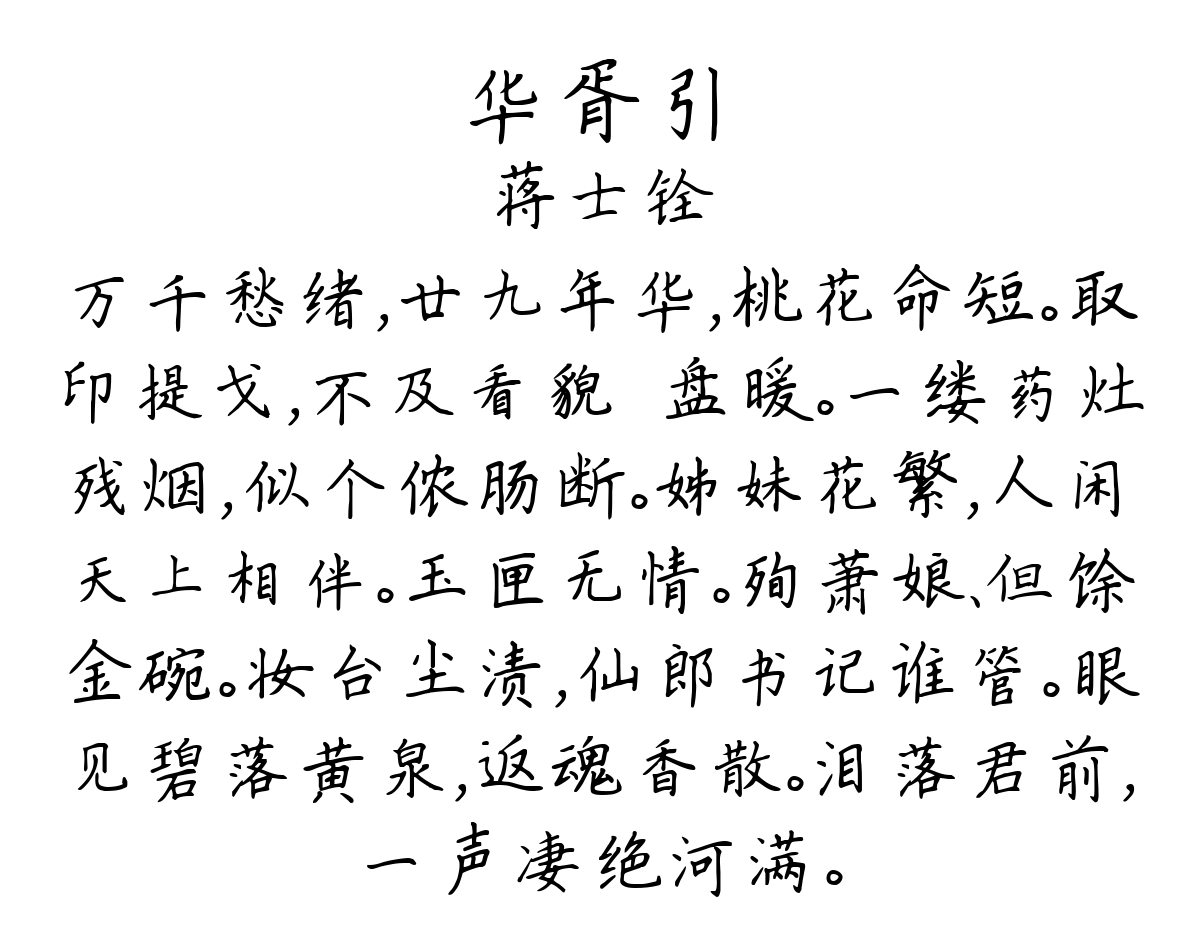 华胥引
蒋士铨
万千愁绪,廿九年华,桃花命短。取
印提戈,不及看貌 盘暖。一缕药灶
残烟,似个侬肠断。姊妹花繁,人闲
天上相伴。玉匣无情。殉萧娘、但馀
金碗。妆台尘渍,仙郎书记谁管。眼
见碧落黄泉,返魂香散。泪落君前,
一声凄绝河满。